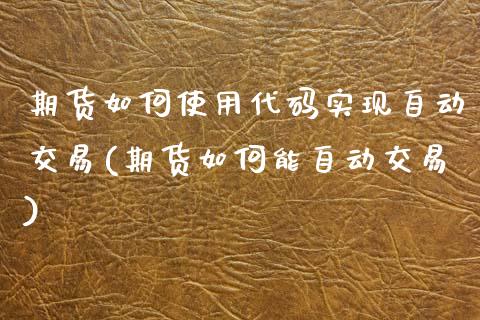 期货如何使用代码实现自动
交易(期货如何能自动交易
)